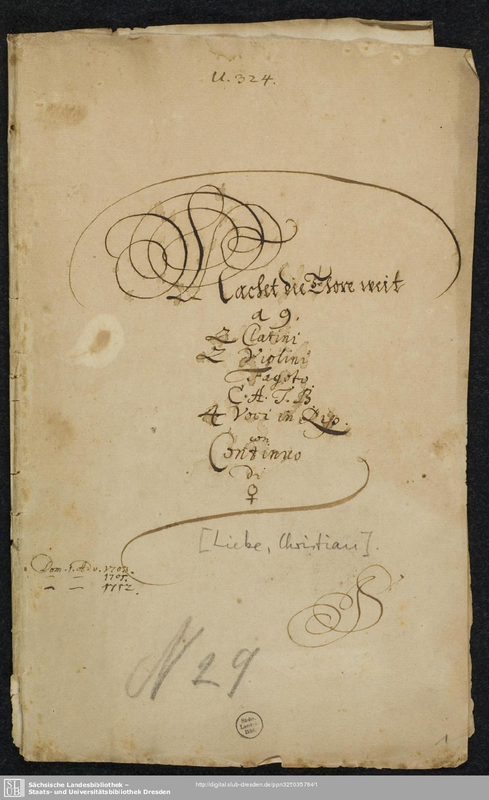 U. 324.
Machet die Thore weit
a 9.
2 Clarini
2 Violini
Fagoto.
C. A. T. B.
4 Voci in Rip.
con
Continuo
di
♀
[Liebe, Christian].
Dom. 1. Adv. 1703.
1705.
1712.
N 29
Sächs.
Landes-
Bibl.
1
SLUB
Sächsische Landesbibliothek –
Staats- und Universitätsbibliothek Dresden
http://digital.slub-dresden.de/ppn325035764/1